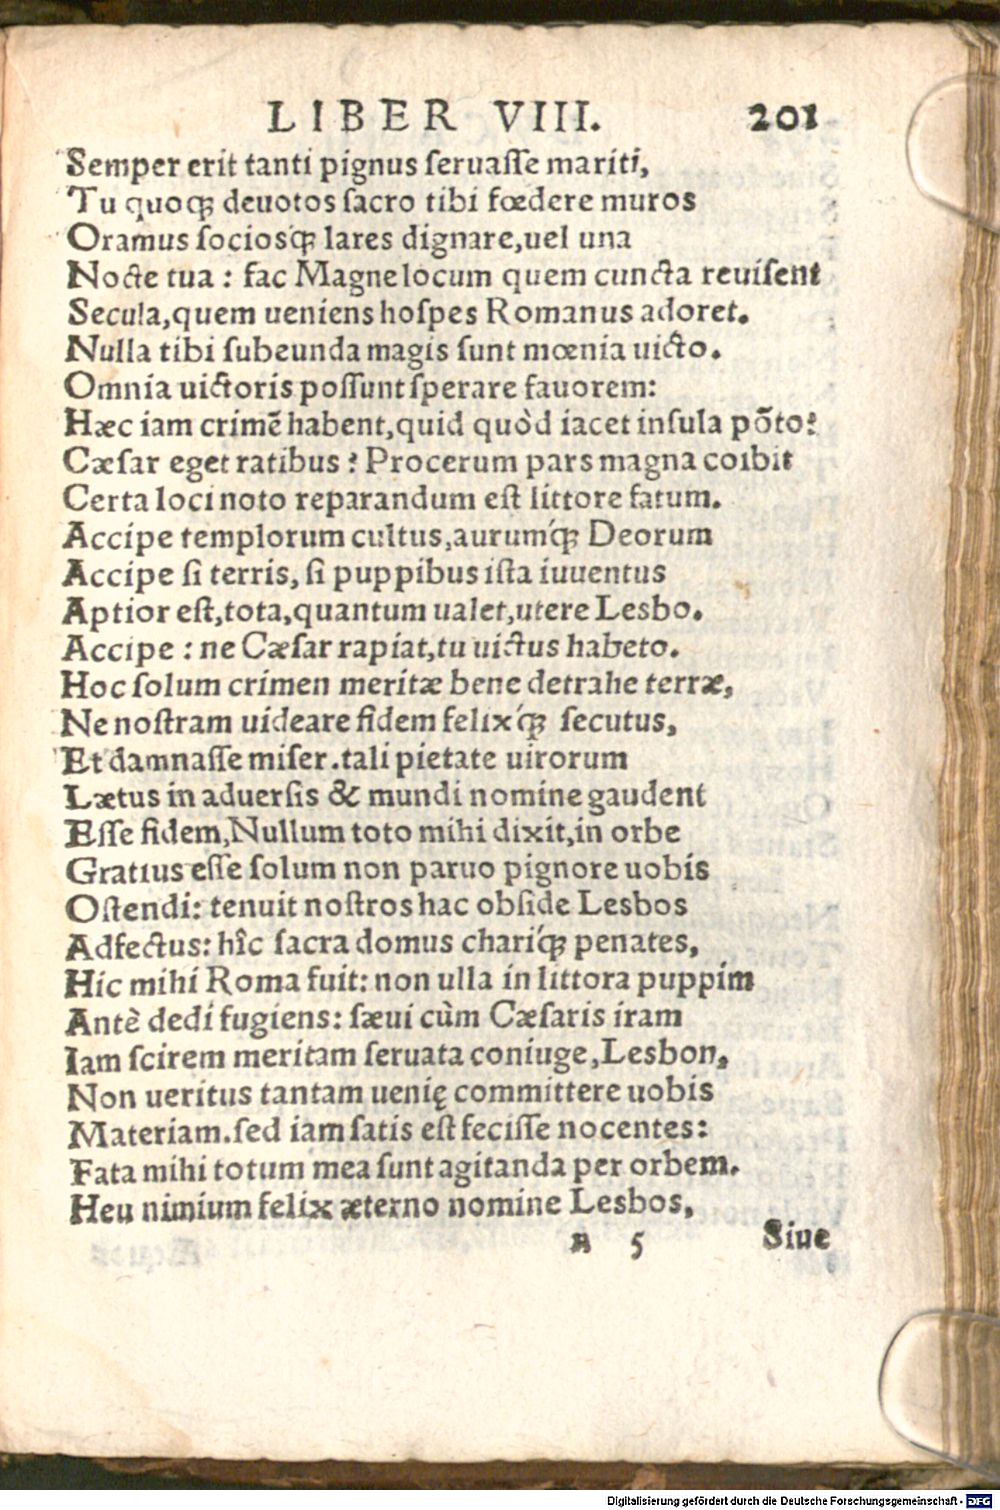 LIBER VIII. 201
Semper erit tanti pignus ſeruaſſe mariti,
Tu quoqꝫ deuotos ſacro tibi fœdere muros
Oramus ſociosq́ꝫ lares dignare,uel una
Nocte tua : fac Magne locum quem cuncta reuiſent
Secula,quem ueniens hoſpes Romanus adoret.
Nulla tibi ſubeunda magis ſunt mœnia uicto.
Omnia uictoris poſſunt ſperare fauorem:
Hæc iam crimē habent,quid quòd iacet inſula pōto?
Cæſar eget ratibus ? Procerum pars magna coibit
Certa loci noto reparandum eſt littore fatum.
Accipe templorum cultus,aurumq́ꝫ Deorum
Accipe ſi terris, ſi puppibus iſta iuuentus
Aptior eſt,tota,quantum ualet,utere Lesbo.
Accipe : ne Cæſar rapiat,tu uictus habeto.
Hoc ſolum crimen meritæ bene detrahe terræ,
Ne noſtram uideare fidem felixq́ꝫ ſecutus,
Et damnaſſe miſer.tali pietate uirorum
Lætus in aduerſis & mundi nomine gaudent
Eſſe fidem,Nullum toto mihi dixit,in orbe
Gratius eſſe ſolum non paruo pignore uobis
Oſtendi: tenuit noſtros hac obſide Lesbos
Adfectus: hîc ſacra domus chariq́ꝫ penates,
Hic mihi Roma fuit: non ulla in littora puppim
Antè dedi fugiens: ſæui cùm Cæſaris iram
Iam ſcirem meritam ſeruata coniuge,Lesbon,
Non ueritus tantam uenię committere uobis
Materiam.ſed iam ſatis eſt feciſſe nocentes:
Fata mihi totum mea ſunt agitanda per orbem.
Heu nimium felix æterno nomine Lesbos,
A 5 Siue
Digitalisierung gefördert durch die Deutsche Forschungsgemeinschaft - DFG